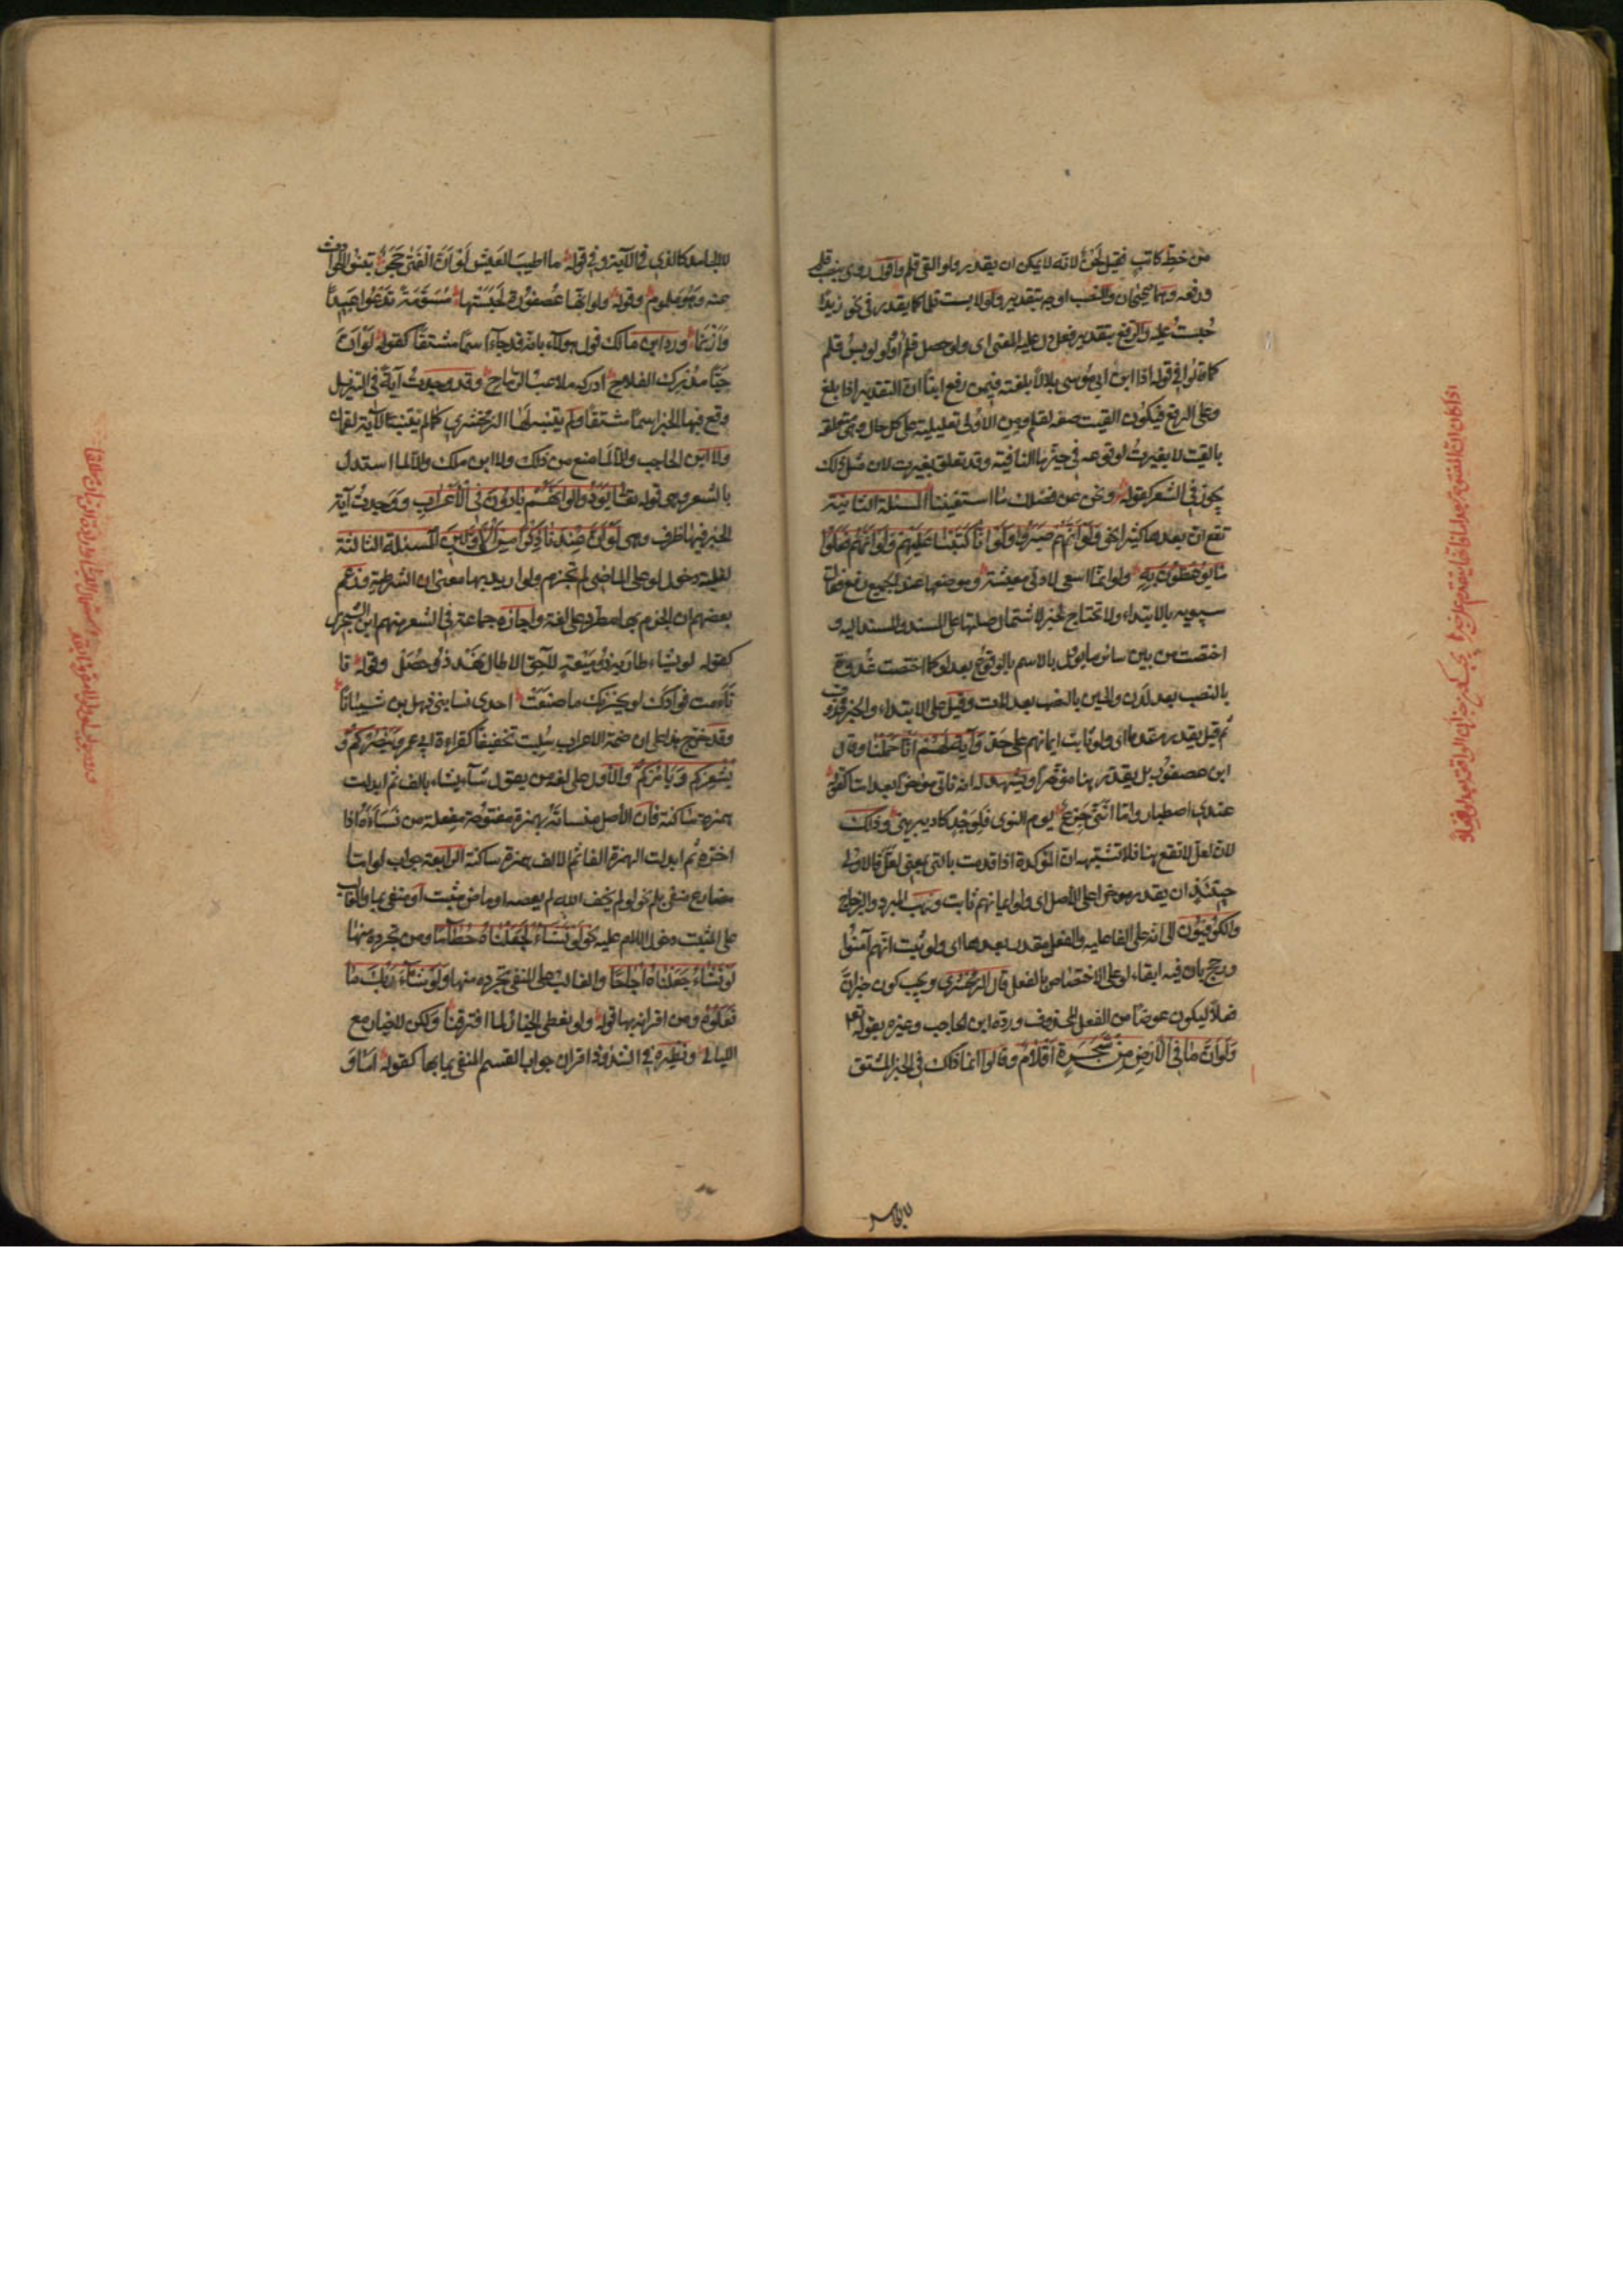 من خط كاتب فقيل لحن لانه لا يمكن ان يقدر ولو التي قلم واقول روى بنصب قلم
ورفعه وهما صحيحان والنصب اوجه بتقدير ولو لابست قلما كما يقدر في نحو زيدا
حبست عليه والرفع بتقدير فعل دل عليه المعنى اى ولو حصل قلم او ولو لوبس قلم
كما قالوا في قوله اذا ابن ابي موسى بلالا بلغته فيمن رفع ابنا ان التقدير اذا بلغ
وعلى الرفع فيكون القيت صفة لقلم ومن الاولى تعليلية على كل حال وهي متعلقة
بالقيت لا بغيرت لوقوعه في حيز ما النافية وقد تعلق بغيرت لان مثل ذلك
يجوز في الشعر كقوله ونحن عن فضلك ما استغنينا المسئلة الثانية
تقع ان بعدها كثيرا نحو ولو انهم صبروا ولو انا كتبنا عليهم ولو انهم فعلوا
ما يوعظون به ولو انما اسعى لادنى معيشة وموضعها عند الجميع رفع فقال
سيبويه بالابتداء ولا تحتاج لخبر لاشتمال صلتها على المسند والمسند اليه و
اختصت من بين سائر ما يؤل بالاسم بالوقوع بعد لو كما اختصت غدوة
بالنصب بعد لدن والحين بالنصب بعد لات وقيل على الابتداء والخبر محذوف
ثم قيل يقدر مقدما اى ولو ثابت ايمانهم على حد وآية لهم انا حملنا وقال
ابن عصفور بل يقدر هنا مؤخرا ويشهد له انه ياتي مؤخرا بعد اما كقوله
عندي اصطبار واما انني جزع يوم النوى فلوجد كاد يبريني وذلك
لان لعل لا تقع هنا فلا تشتبه ان المؤكدة اذا قدمت بالتي بمعنى لعل فالاولى
حينئذ ان يقدر مؤخرا على الاصل اى ولو ايمانهم ثابت وذهب المبرد والزجاج
والكوفيون الى انه على الفاعلية والفعل مقدر بعدها اى ولو ثبت انهم آمنوا
ورجح بان فيه ابقاء لو على الاختصاص بالفعل قال الزمخشرى ويجب كون خبر ان
فعلا ليكون عوضا من الفعل المحذوف ورده ابن الحاجب وغيره بقوله تع
ولو ان ما في الارض من شجرة اقلام وقالوا انما ذاك في الخبر المشتق
لا الجامد كالذي في الآية وفي قوله ما اطيب العيش لو ان الفتى حجر تنبو الحوادث
عنه وهو ملموم وقوله ولو انها عصفورة لحسبتها مسومة تدعوا عبيدا
وازنما ورد ابن مالك قول هولاء بانه قد جآء اسما مشتقا كقوله لو ان
حيا مدرك الفلاح ادركه ملاعب الرماح وقد وجدت آية في التنزيل
وقع فيها الخبر اسما مشتقا ولم يتنبه لها الزمخشري كما لم يتنبه لآية لقمان
ولا ابن الحاجب والا لما منع من ذلك ولا ابن ملك والا لما استدل
بالشعر وهى قوله تعالى يودوا لو انهم بادون في الاعراب ووجدت آية
الخبر فيها ظرف وهى لو ان عندنا ذكرا من الاولين المسئلة الثالثة
لغلبة دخول لو على الماضى لم تجزم ولو اريد بها معنى ان الشرطية وزعم
بعضهم ان الجزم بها مطرد على لغة واجازه جماعة في الشعر منهم ابن الشجرى
كقوله لو يشاء طار به ذو ميعة لاحق الاطال نهد ذو خصل وقوله تا
تامت فوادك لو يحزنك ما صنعت احدى نساء بني ذهل بن شيبانا
وقد خرج هذا على ان ضمة الاعراب سكنت تخفيفا كقراءة ابي عمرو ينصركم و
يشعركم ويامركم والاول على لغة من يقول شآ يشاء بالف ثم ابدلت
همزة ساكنة فان الاصل منسأة بهمزة مفتوحة مفعلة من نسأه اذا
اخره ثم ابدلت الهمزة الفا ثم الالف همزة ساكنة الرابعة جواب لو اما
مضارع منفى بلم نحو لو لم يخف الله لم يعصه او ماض مثبت او منفى بما والغالب
على المثبت دخول اللام عليه نحو لو نشاء لجعلناه حطاما ومن تجرده منها
لو نشاء جعلناه اجاجا والغالب على المنفى تجرده منها ولو شآء ربك ما
فعلوه ومن اقترانه بها قوله ولو نعطى الخيار لما افترقنا ولكن لا خيار مع
الليالي ونظيره في الشذوذ اقتران جواب القسم المنفى بما بها كقوله اما و
للجامد